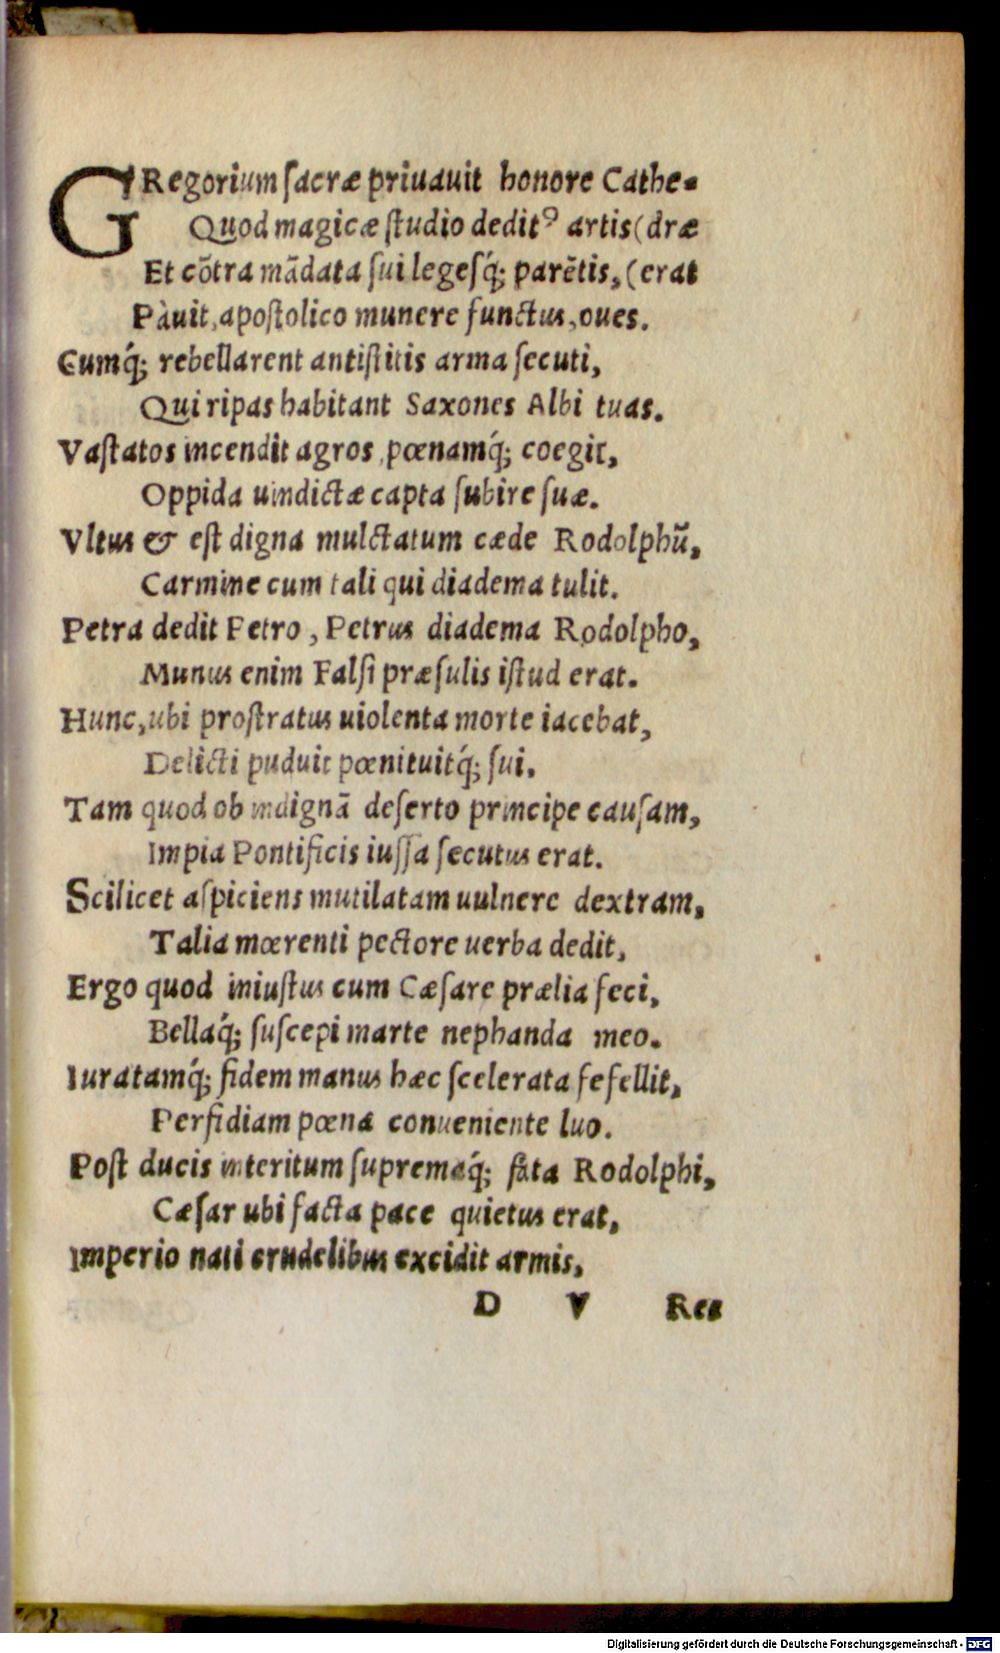 GRegorium ſacræ priuauit honore Cathe-
Quod magicæ ſtudio deditꝰ artis (dræ
Et cõtra mãdata ſui legeſq́; parẽtis, (erat
Pàuit, apoſtolico munere functus, oues.
Cumq́; rebellarent antiſtitis arma ſecuti,
Qui ripas habitant Saxones Albi tuas.
Vaſtatos incendit agros, pœnamq́; coegit,
Oppida uindictæ capta ſubire ſuæ.
Vltus & eſt digna mulctatum cæde Rodolphũ,
Carmine cum tali qui diadema tulit.
Petra dedit Petro, Petrus diadema Rodolpho,
Munus enim Falſi præſulis iſtud erat.
Hunc, ubi proſtratus uiolenta morte iacebat,
Delicti puduit pœnituitq́; ſui.
Tam quod ob indignã deſerto principe cauſam,
Impia Pontificis iuſſa ſecutus erat.
Scilicet aſpiciens mutilatam uulnere dextram,
Talia mœrenti pectore uerba dedit,
Ergo quod iniuſtus cum Cæſare prælia feci,
Bellaq́; ſuſcepi marte nephanda meo.
Iuratamq́; fidem manus hæc ſcelerata fefellit,
Perfidiam pœna conueniente luo.
Poſt ducis interitum ſupremaq́; fata Rodolphi,
Cæſar ubi facta pace quietus erat,
Imperio nati crudelibus excidit armis,
D V Res
Digitalisierung gefördert durch die Deutsche Forschungsgemeinschaft - DFG